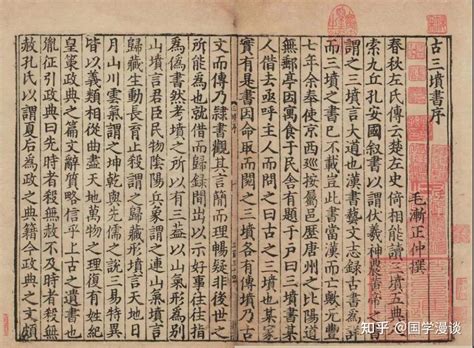 古三墳書序
毛漸正仲撰
春秋左氏傳云楚左史倚相能讀三墳五典八
索九丘孔安國敘書以謂伏羲神農黃帝之書
謂之三墳言大道也漢書藝文志錄古書為詳
而三墳之書已不載豈此書當漢而亡歟元豐
七年余奉使京西巡按屬邑歷唐州之比陽道
無郵亭因寓食于民舍有題于戶曰三墳書某
人借去亟呼主人而問之曰古三墳也某家
實有是書因命取而閱之三墳各有傳墳乃古
文而傳乃隸書觀其言簡而理暢疑非後世之
所能為也就借而歸錄間出以示好事往往指
為偽書然考墳之所以有三蓋以山氣形為別
山墳言君臣民物陰陽兵象謂之連山氣墳言
歸藏生動長育止殺謂之歸藏形墳言天地日
月山川雲氣謂之坤乾與先儒之說三易特異
皆以義類相從曲盡天地萬物之理復有姓紀
皇策政典之篇文辭質略信乎上古之遺書也
胤征引政典曰先時者殺無赦不及時者殺無
赦孔氏以謂夏后為政之典籍今政典之文頗
知乎 @国学漫谈